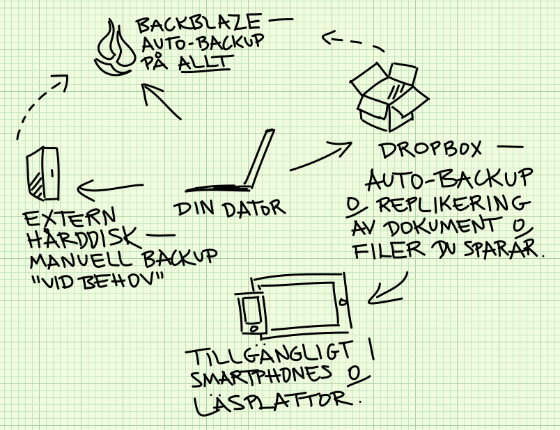 BACKBLAZE —
AUTO-BACKUP
PÅ ALLT
DROPBOX —
AUTO-BACKUP
O REPLIKERING
AV DOKUMENT O
FILER DU SPARAR.
DIN DATOR
EXTERN
HÅRDDISK —
MANUELL BACKUP
"VID BEHOV"
TILLGÄNGLIGT I
SMARTPHONES O
LÄSPLATTOR.